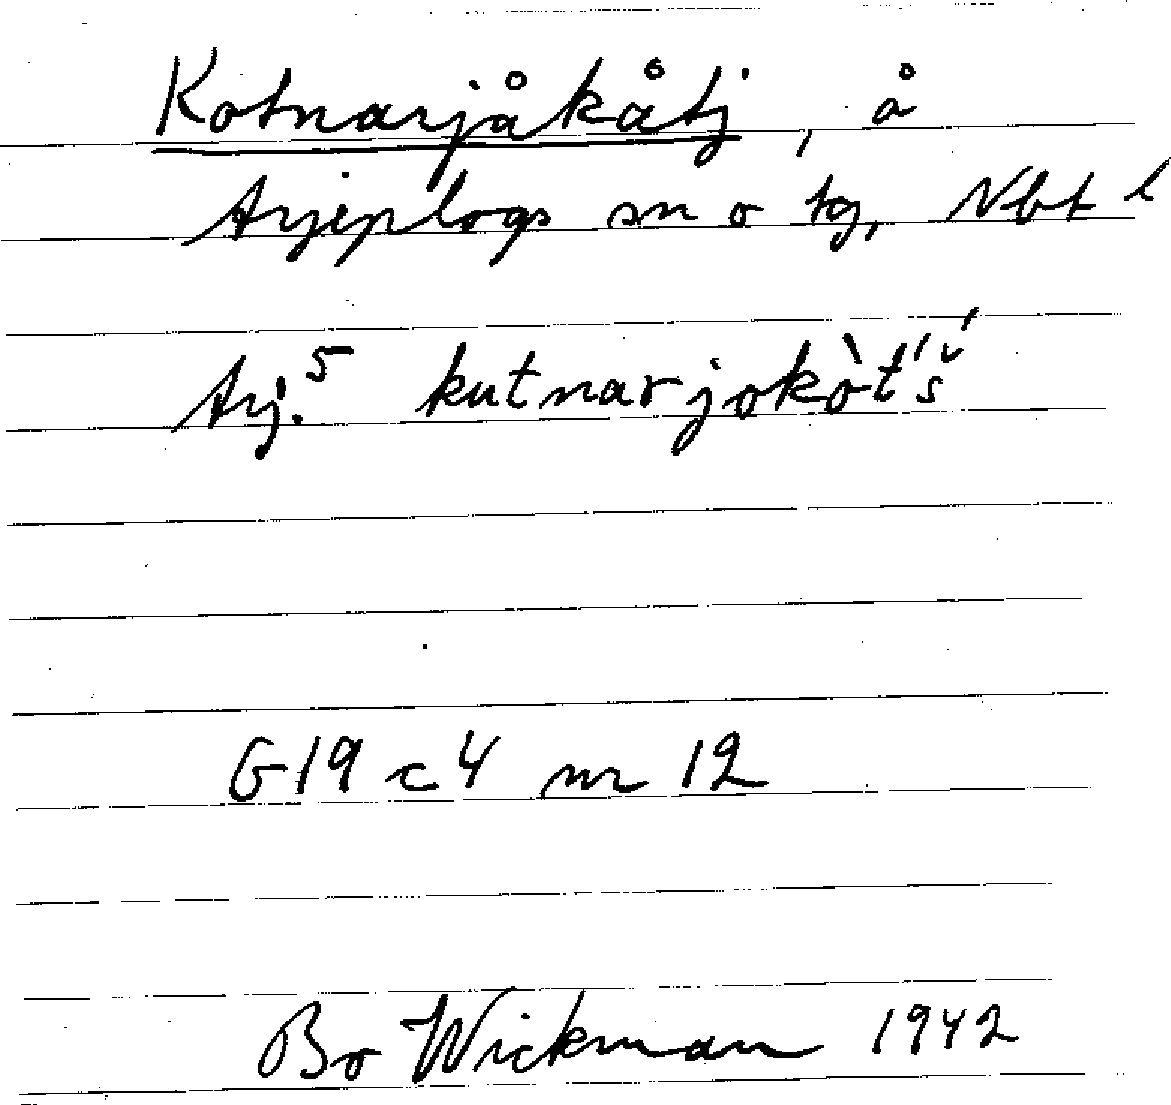 Kotnarjåkåtj, å
Arjeplogs sn o tg, Nbt l
Arj.⁵ kutnarjokòt́š́
G19 c 4 nr 12
Bo Wickman 1942